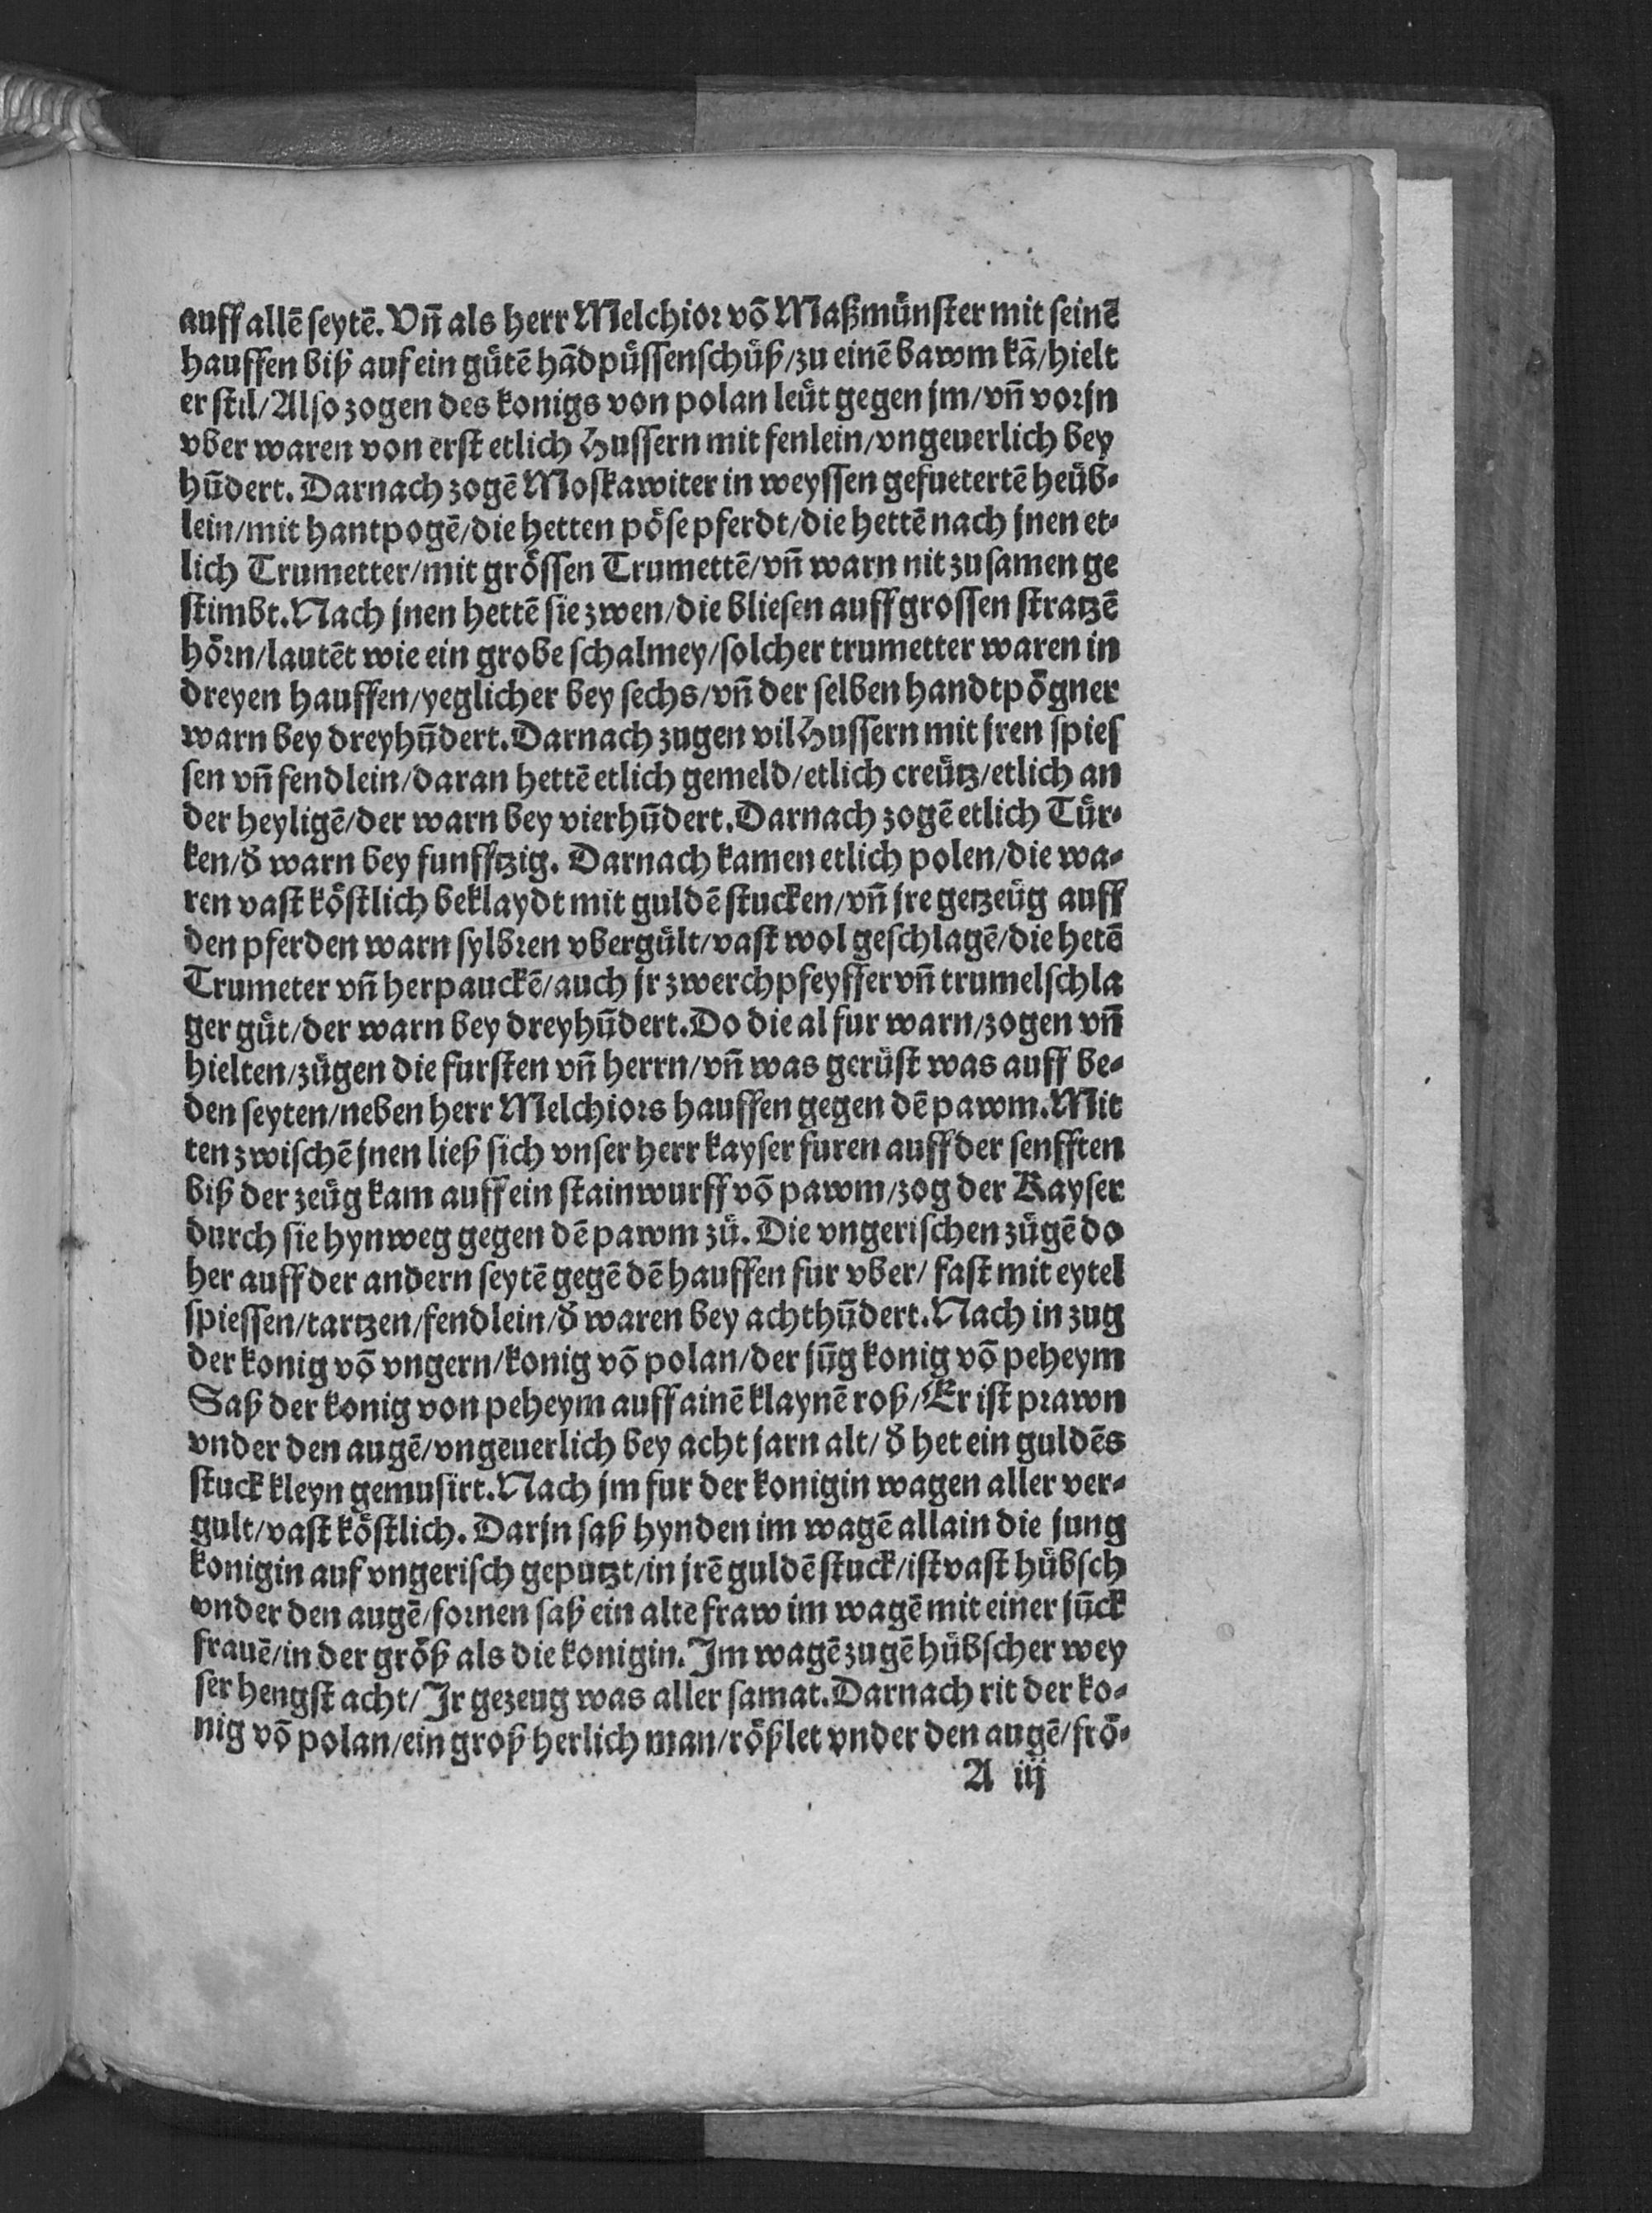 auff allē seytē. Vñ als herr Melchior vō Maßmünster mit seinē
hauffen biß auf ein gůtē hādpüssenschůß/zu einē bawm kā/hielt
er stil/Also zogen des konigs von polan leüt gegen jm/vñ vorjn
vber waren von erst etlich Hussern mit fenlein/vngeuerlich bey
hūdert. Darnach zogē Moskawiter in weyssen gefuetertē heüb-
lein/mit hantpogē/die hetten pöse pferdt/die hettē nach jnen et-
lich Trumetter/mit grössen Trumettē/vñ warn nit zusamen ge
stimbt. Nach jnen hettē sie zwen/die bliesen auff grossen stratzē
hörn/lautēt wie ein grobe schalmey/solcher trumetter waren in
dreyen hauffen/yeglicher bey sechs/vñ der selben handtpögner
warn bey dreyhūdert. Darnach zugen vil Hussern mit jren spies
sen vñ fendlein/daran hettē etlich gemeld/etlich creütz/etlich an
der heyligē/der warn bey vierhūdert. Darnach zogē etlich Tür-
ken/đ warn bey funfftzig. Darnach kamen etlich polen/die wa-
ren vast köstlich beklaydt mit guldē stucken/vñ jre getzeüg auff
den pferden warn sylbren vbergült/vast wol geschlagē/die hetē
Trumeter vñ herpauckē/auch jr zwerchpfeyffer vñ trumelschla
ger gůt/der warn bey dreyhūdert. Do die al fur warn/zogen vñ
hielten/zůgen die fursten vñ herrn/vñ was gerüst was auff be-
den seyten/neben herr Melchiors hauffen gegen dē pawm. Mit
ten zwischē jnen ließ sich vnser herr kayser furen auff der senfften
biß der zeüg kam auff ein stainwurff vō pawm/zog der Kayser
durch sie hynweg gegen dē pawm zů. Die vngerischen zůgē do
her auff der andern seytē gegē dē hauffen fur vber/ fast mit eytel
spiessen/tartzen/fendlein/đ waren bey achthūdert. Nach in zug
der konig vō vngern/konig vō polan/der jūg konig vō peheym
Saß der konig von peheym auff ainē klaynē roß/Er ist prawn
vnder den augē/vngeuerlich bey acht jarn alt/đ het ein guldēs
stuck kleyn gemusirt. Nach jm fur der konigin wagen aller ver-
gult/vast köstlich. Darjn saß hynden im wagē allain die jung
konigin auf vngerisch geputzt/in jrē guldē stuck/ist vast hübsch
vnder den augē/fornen saß ein alte fraw im wagē mit einer jūck
frauē/in der größ als die konigin. Im wagē zugē hübscher wey
ser hengst acht/Ir gezeug was aller samat. Darnach rit der ko-
nig vō polan/ein groß herlich man/rößlet vnder den augē/frö-
A iij